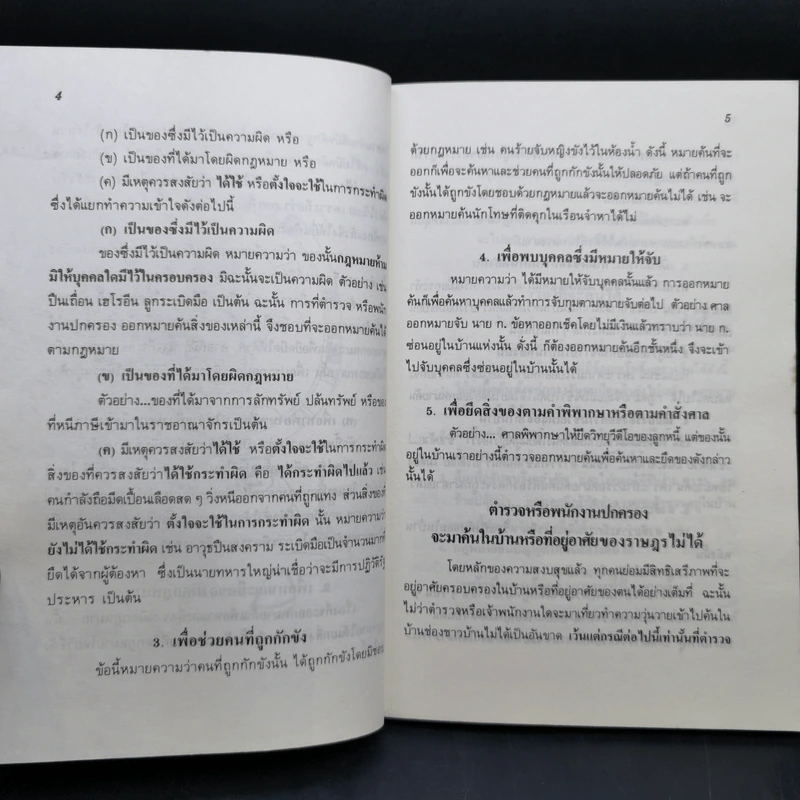 4
(ก) เป็นของซึ่งมีไว้เป็นความผิด หรือ
(ข) เป็นของที่ได้มาโดยผิดกฎหมาย หรือ
(ค) มีเหตุควรสงสัยว่า ได้ใช้ หรือตั้งใจจะใช้ในการกระทำผิด
ซึ่งได้แยกทำความเข้าใจดังต่อไปนี้
(ก) เป็นของซึ่งมีไว้เป็นความผิด
ของซึ่งมีไว้เป็นความผิด หมายความว่า ของนั้นกฎหมายห้าม
มิให้บุคคลใดมีไว้ในครอบครอง มิฉะนั้นจะเป็นความผิด ตัวอย่าง เช่น
ปืนเถื่อน เฮโรอีน ลูกระเบิดมือ เป็นต้น ฉะนั้น การที่ตำรวจ หรือพนัก
งานปกครอง ออกหมายค้นสิ่งของเหล่านี้ จึงชอบที่จะออกหมายค้นได้
ตามกฎหมาย
(ข) เป็นของที่ได้มาโดยผิดกฎหมาย
ตัวอย่าง...ของที่ได้มาจากการลักทรัพย์ ปล้นทรัพย์ หรือของ
ที่หนีภาษีเข้ามาในราชอาณาจักรเป็นต้น
(ค) มีเหตุควรสงสัยว่าได้ใช้ หรือตั้งใจจะใช้ในการกระทำผิด
สิ่งของที่ควรสงสัยว่าได้ใช้กระทำผิด คือ ได้กระทำผิดไปแล้ว เช่น
คนกำลังถือมีดเปื้อนเลือดสด ๆ วิ่งหนีออกจากคนที่ถูกแทง ส่วนสิ่งของที่
มีเหตุอันควรสงสัยว่า ตั้งใจจะใช้ในการกระทำผิด นั้น หมายความว่า
ยังไม่ได้ใช้กระทำผิด เช่น อาวุธปืนสงคราม ระเบิดมือเป็นจำนวนมากที่
ยึดได้จากผู้ต้องหา ซึ่งเป็นนายทหารใหญ่น่าเชื่อว่าจะมีการปฏิวัติรัฐ
ประหาร เป็นต้น
3. เพื่อช่วยคนที่ถูกกักขัง
ข้อนี้หมายความว่าคนที่ถูกกักขังนั้น ได้ถูกกักขังโดยมิชอบ
5
ด้วยกฎหมาย เช่น คนร้ายจับหญิงขังไว้ในห้องน้ำ ดังนี้ หมายค้นที่จะ
ออกก็เพื่อจะค้นหาและช่วยคนที่ถูกกักขังนั้นให้ปลอดภัย แต่ถ้าคนที่ถูก
ขังนั้นได้ถูกขังโดยชอบด้วยกฎหมายแล้วจะออกหมายค้นไม่ได้ เช่น จะ
ออกหมายค้นนักโทษที่ติดคุกในเรือนจำหาได้ไม่
4. เพื่อพบบุคคลซึ่งมีหมายให้จับ
หมายความว่า ได้มีหมายให้จับบุคคลนั้นแล้ว การออกหมาย
ค้นก็เพื่อค้นหาบุคคลแล้วทำการจับกุมตามหมายจับต่อไป ตัวอย่าง ศาล
ออกหมายจับ นาย ก. ข้อหาออกเช็คโดยไม่มีเงินแล้วทราบว่า นาย ก.
ซ่อนอยู่ในบ้านแห่งนั้น ดังนี้ ก็ต้องออกหมายค้นอีกชั้นหนึ่ง จึงจะเข้า
ไปจับบุคคลซึ่งซ่อนอยู่ในบ้านนั้นได้
5. เพื่อยึดสิ่งของตามคำพิพากษาหรือตามคำสั่งศาล
ตัวอย่าง... ศาลพิพากษาให้ยึดวิทยุวีดีโอของลูกหนี้ แต่ของนั้น
อยู่ในบ้านเราอย่างนี้ตำรวจออกหมายค้นเพื่อค้นหาและยึดของดังกล่าว
นั้นได้
ตำรวจหรือพนักงานปกครอง
จะมาค้นในบ้านหรือที่อยู่อาศัยของราษฎรไม่ได้
โดยหลักของความสงบสุขแล้ว ทุกคนย่อมมีสิทธิเสรีภาพที่จะ
อยู่อาศัยครอบครองในบ้านหรือที่อยู่อาศัยของตนได้อย่างเต็มที่ ฉะนั้น
ไม่ว่าตำรวจหรือเจ้าพนักงานใดจะมาเที่ยวทำความวุ่นวายเข้าไปค้นใน
บ้านช่องชาวบ้านไม่ได้เป็นอันขาด เว้นแต่กรณีต่อไปนี้เท่านั้นที่ตำรวจ